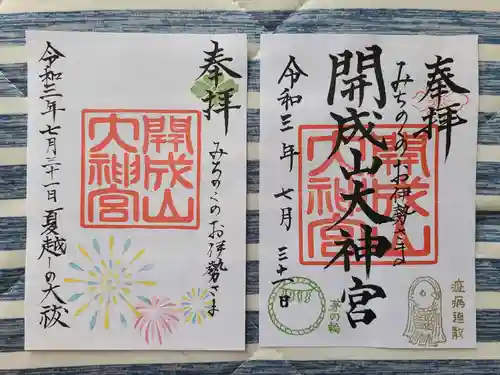 奉拝
みちのくのお伊勢さま
開成山
大神宮
令和三年七月三十一日 夏越しの大祓
奉拝
みちのくのお伊勢さま
開成山大神宮
開成山
大神宮
令和三年 七月 三十一日
茅の輪
疫病退散